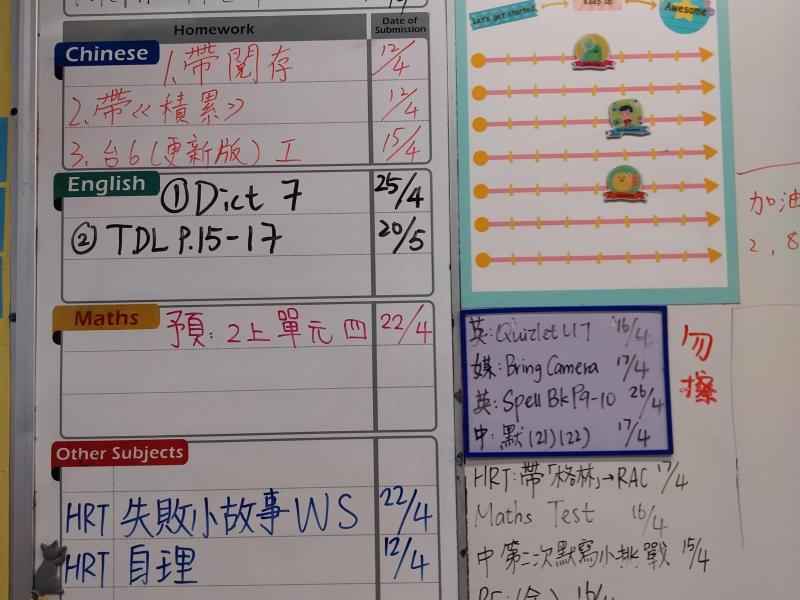 Homework
Date of Submission
Chinese
1. 帶閱存 12/4
2. 帶《積累》 12/4
3. 台6(更新版) 工 15/4
English
① Dict 7 25/4
② TDL P.15-17 20/5
Maths
預: 2上單元四 22/4
Other Subjects
HRT 失敗小故事WS 22/4
HRT 自理 12/4
Let's get started
Keep up
Awesome
英: Quizlet U7 16/4
媒: Bring Camera 17/4
英: Spell Bk P9-10 26/4
中: 默(21)(22) 17/4
勿擦
HRT: 帶「格林」→RAC 17/4
Maths Test 16/4
中 第二次默寫小挑戰 15/4
加油
2, 8